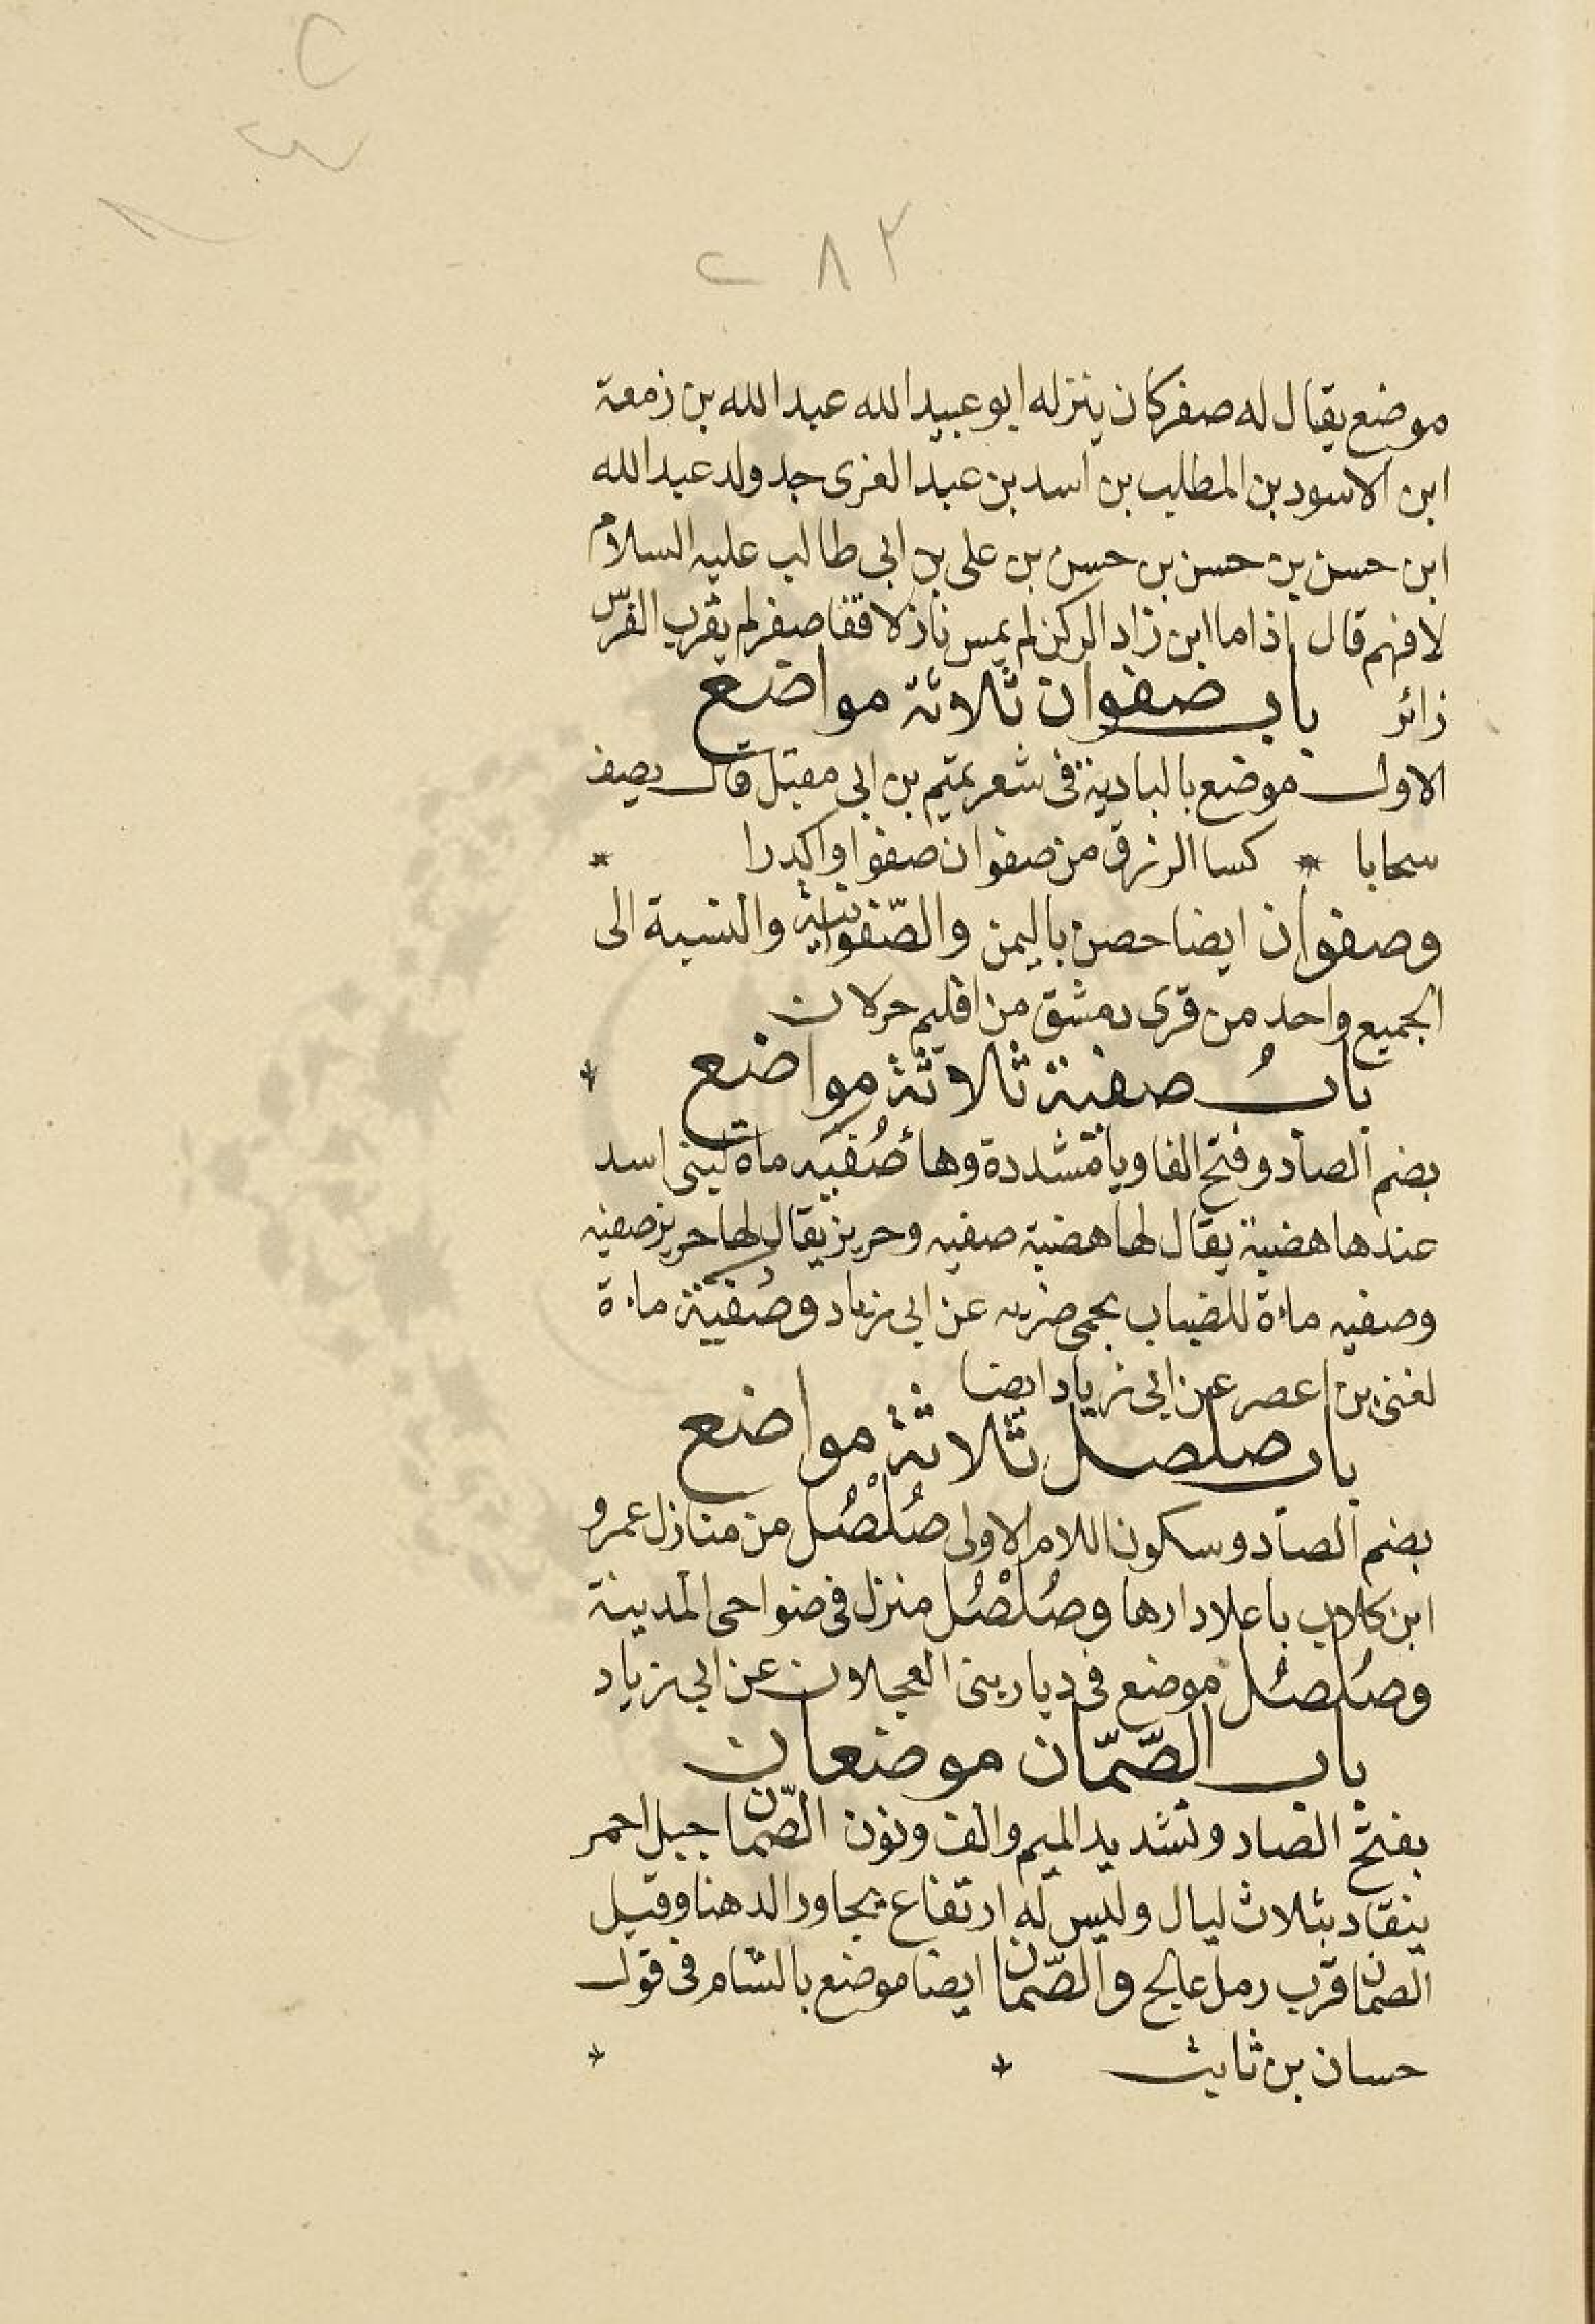 ٢٨٣
موضع يقال له صفر كان ينزله ابو عبيد الله عبد الله بن زمعة
ابن الاسود بن المطلب بن اسد بن عبد العزى جد ولد عبد الله
ابن حسن بن حسن بن حسن بن على بن ابى طالب عليه السلام
لافهم قال اذا ما ابن زاد الركن لم يمس نازلا قفا صفر لم يقرب الفرش
زائر باب صفوان ثلاثة مواضع
الاول موضع بالبادية فى شعر تميم بن ابى مقبل قال يصف
سحابا * كسا الرزق من صفوان صفوا واكدرا *
وصفوان ايضا حصن باليمن والصّفوانية والنسبة الى
الجميع واحد من قرى دمشق من اقليم حرلان
بابُ صفية ثلاثة مواضع
بضم الصاد وفتح الفا ويا مشددة وهاء صُفَيَه ماة لبنى اسد
عندها هضبة يقال لها هضبة صفيه وحريز يقال لها حريز صفيه
وصفيه ماءة للضباب بحمى ضريه عن ابى زياد وصُفَيّة ماءة
لغنى بن اعصر عن ابى زياد ايضا
باب صلصل ثلاثة مواضع
بضم الصاد وسكون اللام الاولى صُلْصُل من منازل عمرو
ابن كلاب باعلا دارها وصُلْصُل منزل فى ضواحى المدينة
وصُلصُل موضع فى ديار بنى العجلان عن ابى زياد
باب الصّمّان موضعان
بفتح الصاد وتشديد الميم والف ونون الصّمان جبل احمر
ينقاد بثلاث ليال وليس له ارتفاع يجاور الدهنا وقيل
الصمان قرب رمل عالج والصّمان ايضا موضع بالشام فى قول
حسان بن ثابت